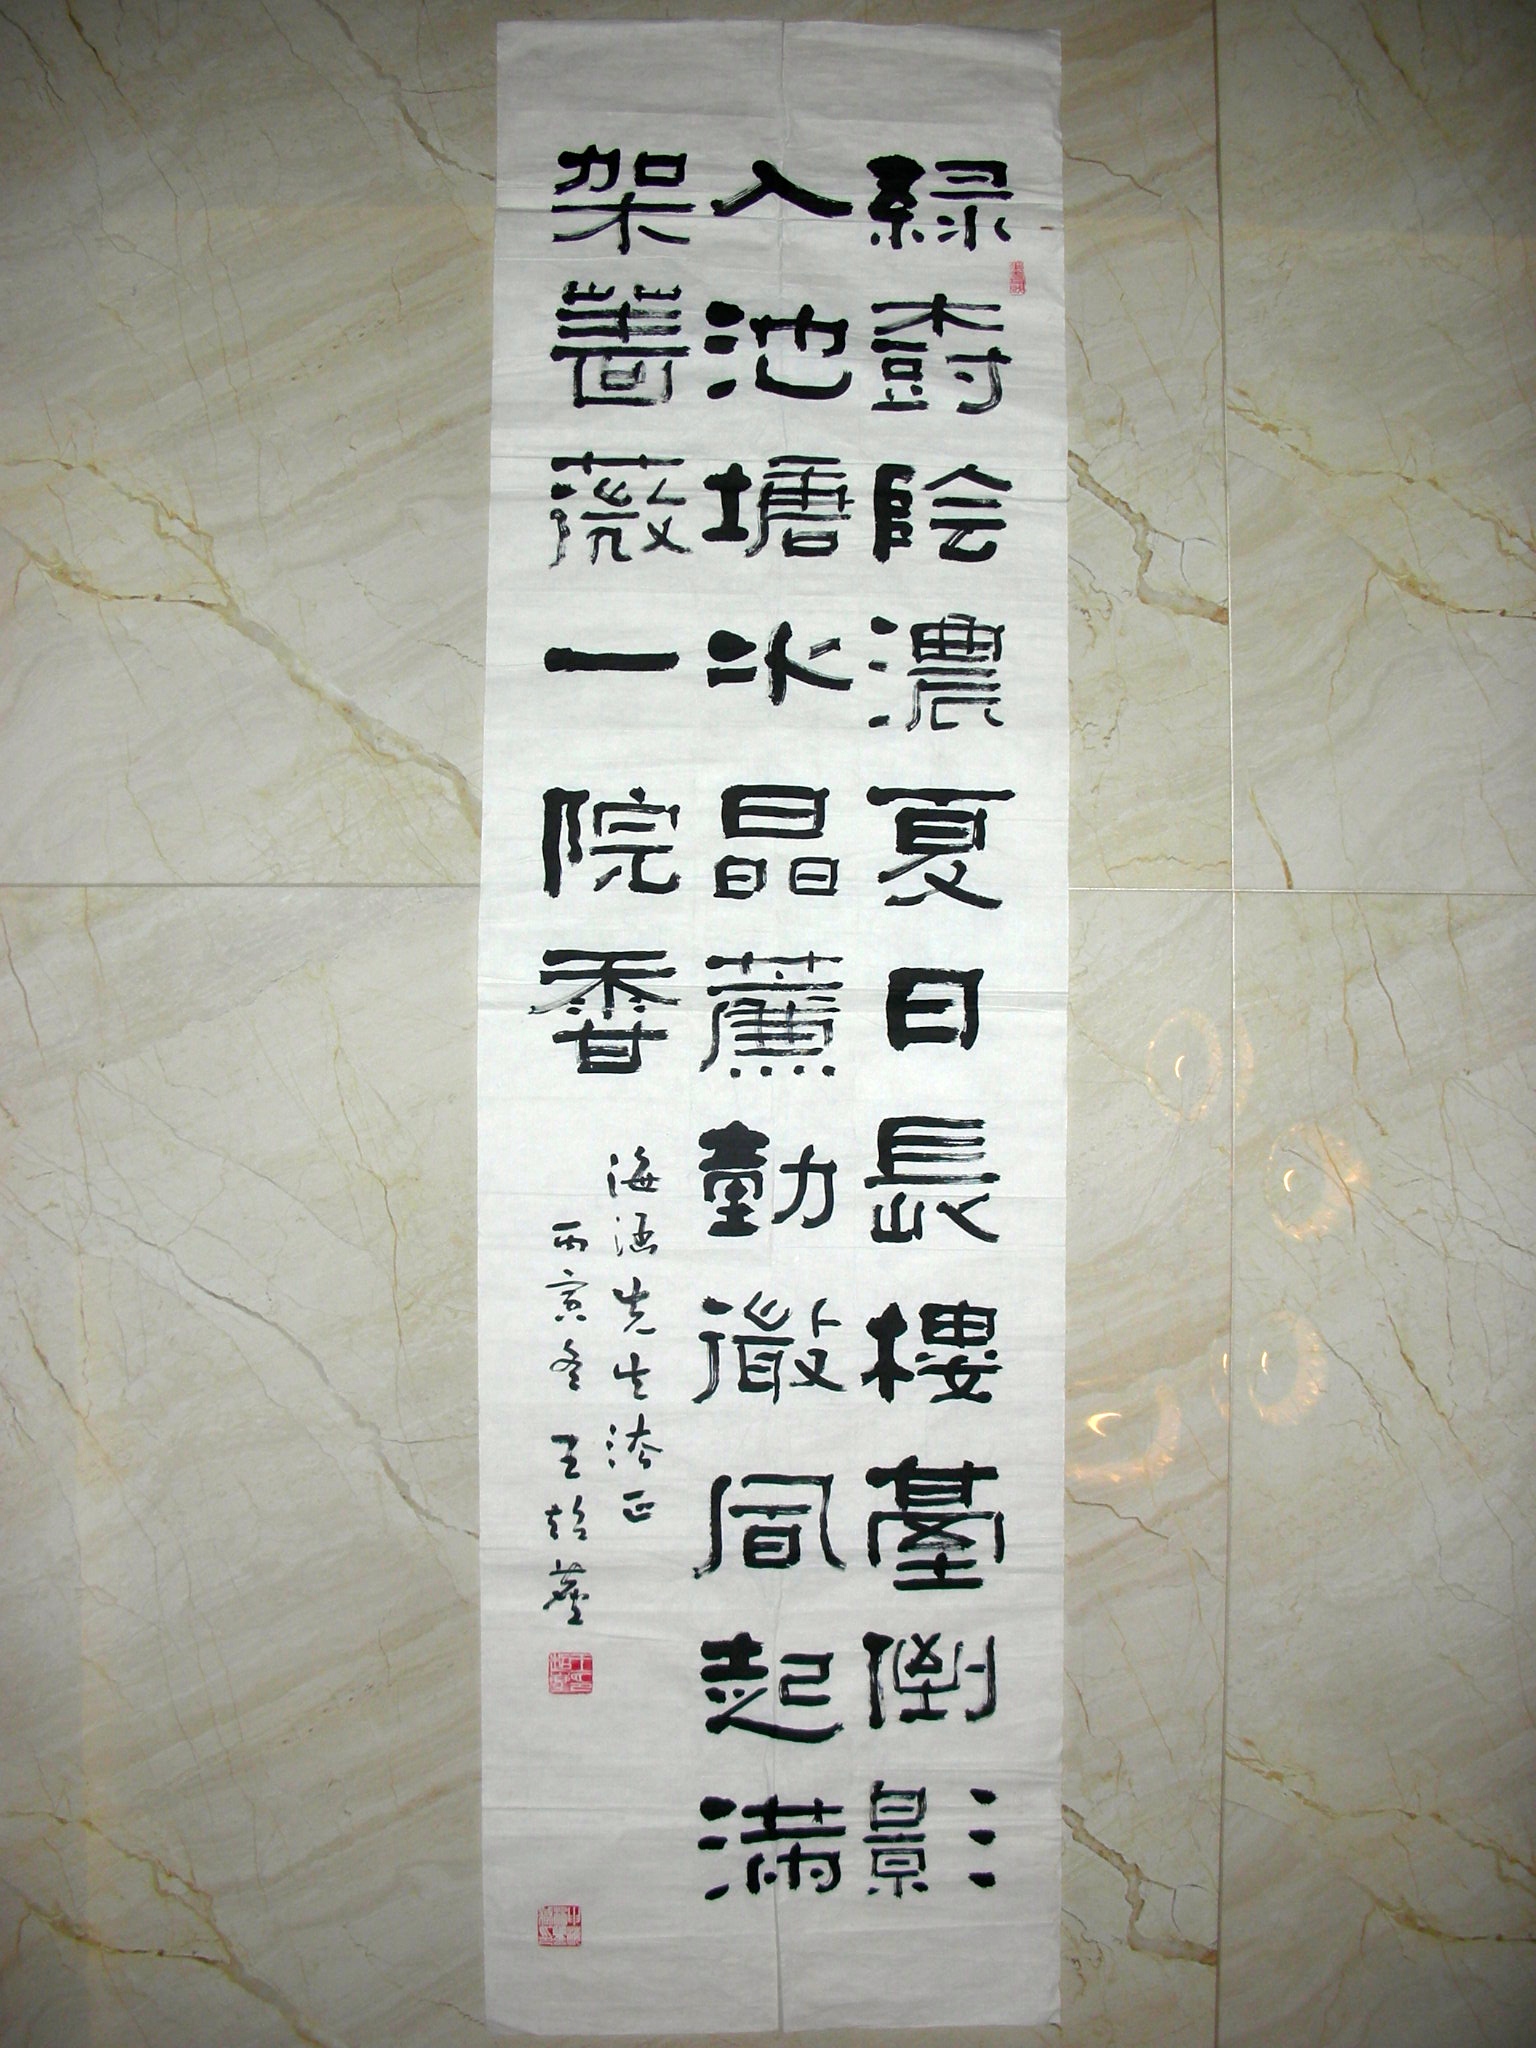 緑樹陰濃夏日長樓臺倒影
入池塘水晶簾動微風起滿
架薔薇一院香
海涵先生正
丙寅冬王超塵